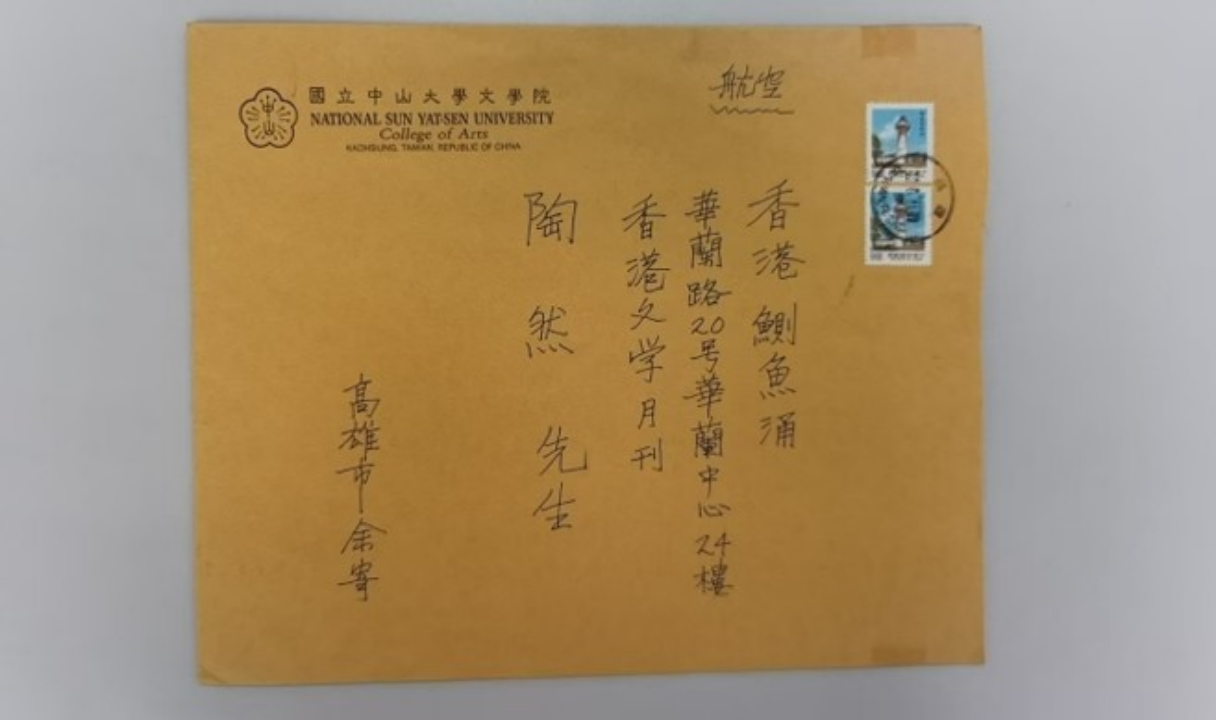 國立中山大學文學院
NATIONAL SUN YAT-SEN UNIVERSITY
College of Arts
KAOHSIUNG, TAIWAN, REPUBLIC OF CHINA
中山
航空
香港鰂魚涌
華蘭路20号華蘭中心24樓
香港文学月刊
陶然先生
高雄市余寄